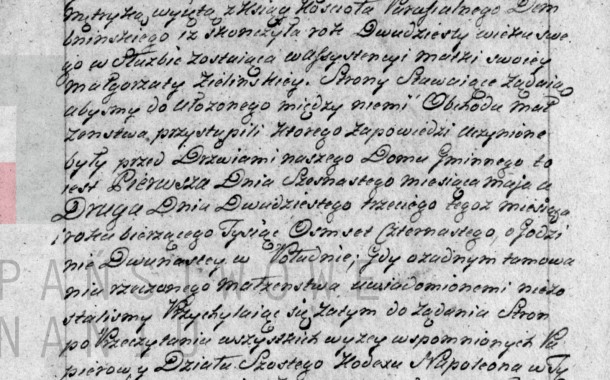 metryką wyiętą z Ksiąg Kościoła Parafialnego Dem
bnińskiego iż skończyła rok Dwudziesty wieku swe
go w Służbie zostaiąca w assystencyi matki swoiey
małgorzaty Zielińskiey. Strony Stawaiące żądaią
abyśmy do ułożonego między niemi Obchodu Mał
żenstwa, przystąpili ktorego zapowiedzi uczynione
były przed Drzwiami naszego Domu Gminnego to
iest Pierwsza Dnia Szesnastego miesiąca maja a
Druga Dnia Dwudziestego trzeciego tegoż miesiąca
i roku bierzącego Tysiąc Osmset Czternastego, o Godzi
nie Dwunastey w Południe; Gdy o żadnym tamowa
nia rzeczonego małżenstwa uwiadomionemi niezo
stalismy Przychylaiąc się zatym do żądania Stron
po Przeczytaniu wszystkich wyżey wspomnionych Pa
pierow, y Działu Szostego Kodexu Napoleona w Ty
PANSTWOWE
NANIU